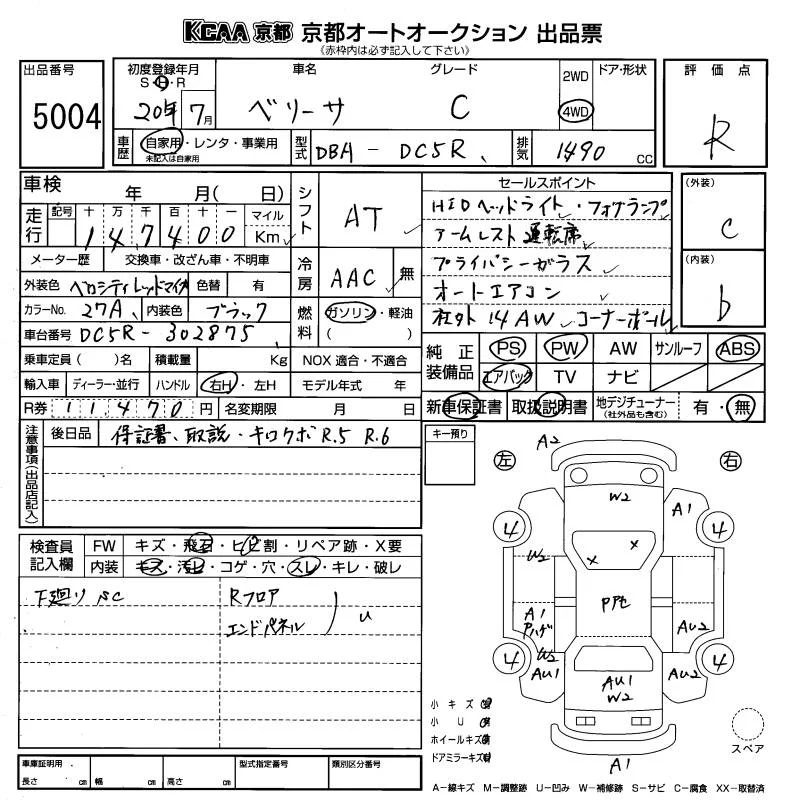 KCAA 京都 京都オートオークション 出品票
(赤枠内は必ず記入して下さい)
出品番号 初度登録年月 車名 グレード 2WD ドア・形状 評価点
S・H・R
5004 20年 7月 ベリーサ C 4WD R
車歴 自家用・レンタ・事業用 型式 DBA - DC5R 排気 1490 CC
未記入は自家用
車検 年 月( 日) シフト AT セールスポイント (外装)
走行 記号 十 万 千 百 十 一 マイル HIDヘッドライト・フォグランプ
1 4 7 4 0 0 Km アームレスト 運転席 C
メーター歴 交換車・改ざん車・不明車 冷房 AAC 無 プライバシーガラス (内装)
外装色 ベロシティレッドマイカ 色替 有 オートエアコン b
カラーNo. 27A 内装色 ブラック 燃料 ガソリン・軽油 社外 14AW コーナーポール
車台番号 DC5R-302875 ( )
乗車定員 ( )名 積載量 Kg NOX 適合・不適合 純正装備品 PS PW AW サンルーフ ABS
輸入車 ディーラー・並行 ハンドル 右H・左H モデル年式 年 エアバック TV ナビ
R券 11,470円 名変期限 月 日 新車保証書 取扱説明書 地デジチューナー 有・無
(社外品も含む)
注意事項(出品店記入) 後日品 保証書、取説・キロクボ R.5 R.6 キー預り
A2
左 右
W2 A1
4 4
検査員記入欄 FW キズ・飛石・ヒビ割・リペア跡・X要
内装 キズ・汚レ・コゲ・穴・スレ・キレ・破レ W2 × ×
下廻り SC Rフロア U
エンドパネル
A1 Pハゲ AU2
W2
4 4
AU1 AU1 AU2
W2
小キズ
小U
ホイールキズ
ドアミラーキズ
スペア
A1
車庫証明用 型式指定番号 類別区分番号
長さ cm 幅 cm 高さ cm
A−線キズ M−調整跡 U−凹み W−補修跡 S−サビ C−腐食 XX−取替済